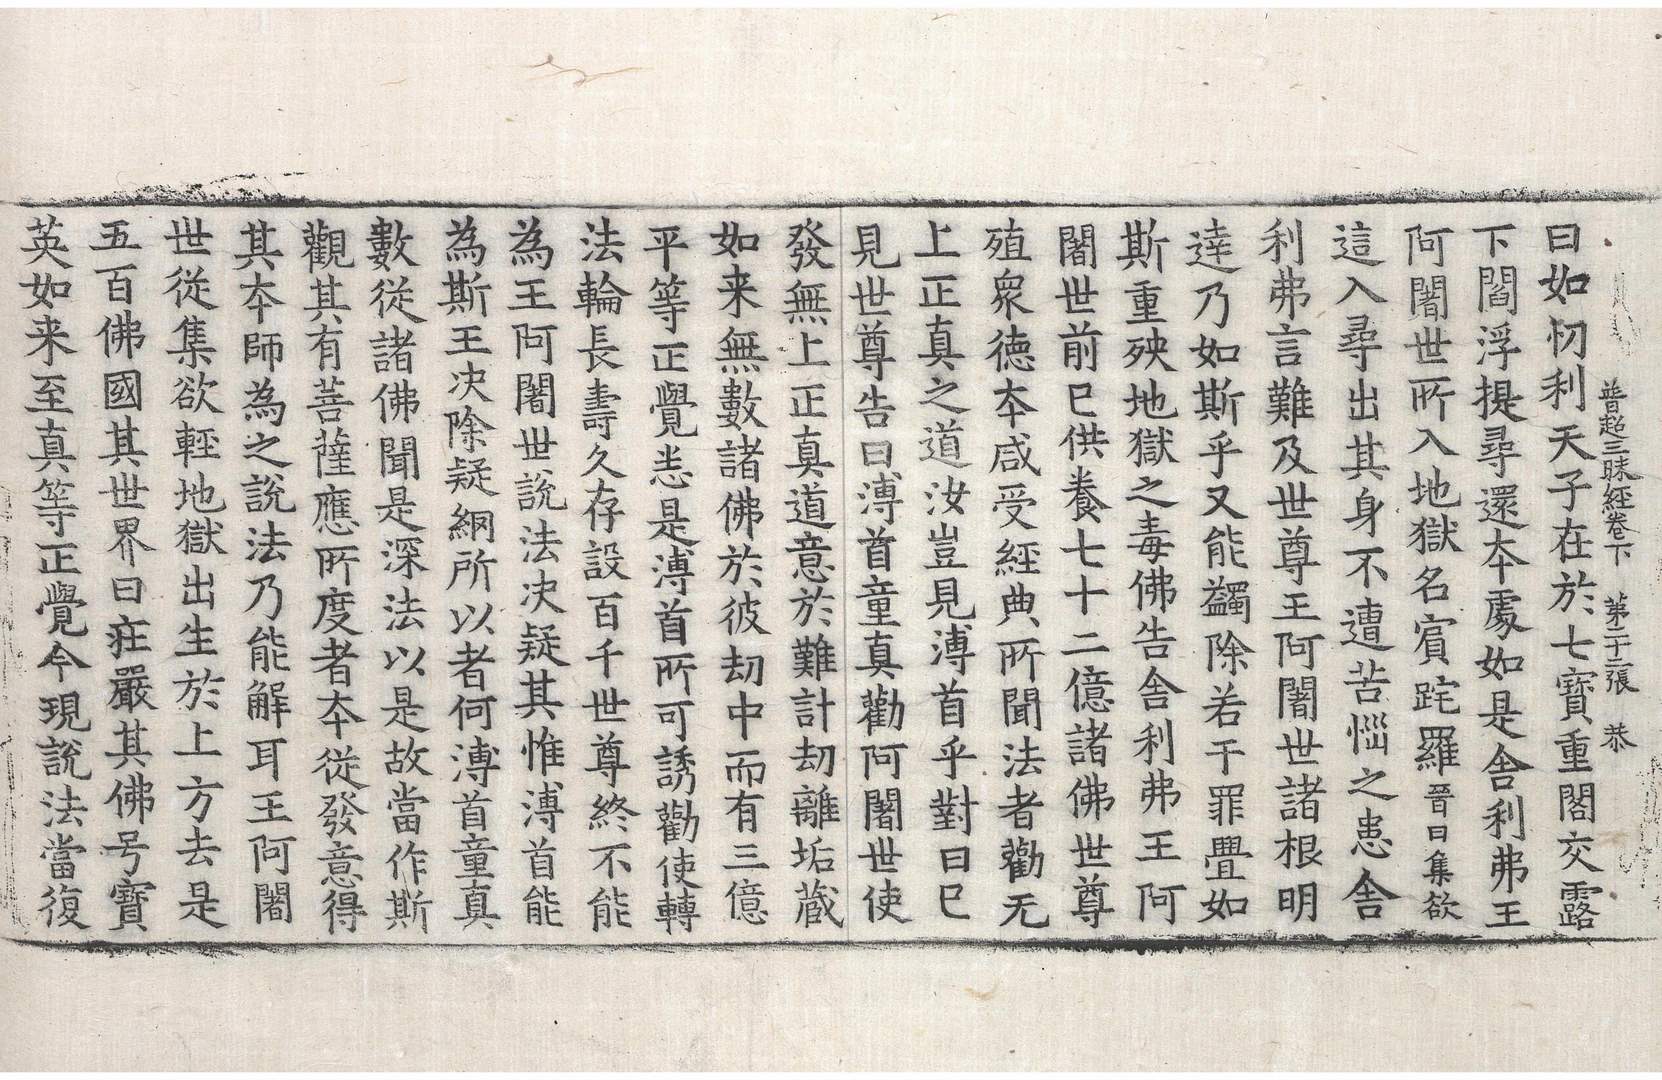 普超三昧經卷下　第二十二張　恭
曰如忉利天子在於七寶重閣交露
下閻浮提尋還夲處如是舍利弗王
阿闍世所入地獄名賔跎羅晉曰集欲
這入尋出其身不遭苦惱之患舍
利弗言難及世尊王阿闍世諸根明
達乃如斯乎又能蠲除若干罪舋如
斯重殃地獄之毒佛告舍利弗王阿
闍世前已供養七十二億諸佛世尊
殖衆德夲咸受經典所聞法者勸无
上正真之道汝豈見溥首乎對曰已
見世尊告曰溥首童真勸阿闍世使
發無上正真道意於難計劫離垢藏
如来無數諸佛於彼劫中而有三億
平等正覺悉是溥首所可誘勸使轉
法輪長壽久存設百千世尊終不能
為王阿闍世說法决疑其惟溥首能
為斯王决除疑網所以者何溥首童真
數從諸佛聞是深法以是故當作斯
觀其有菩薩應所度者夲從發意得
其夲師為之說法乃能解耳王阿闍
世從集欲輕地獄出生於上方去是
五百佛國其世界曰莊嚴其佛号寶
英如来至真等正覺今現說法當復